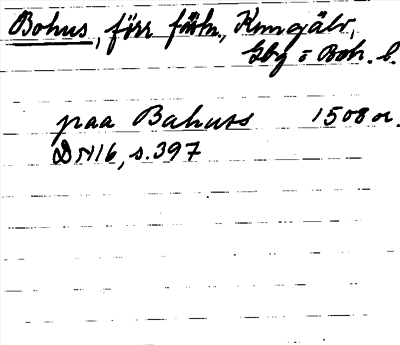 Bohus, förr fästn., Kungälv,
Gbg o Boh. l.
paa Bahuss 1508 or.
DN16, s.397